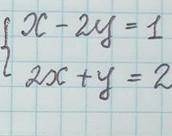 x - 2y = 1
2x + y = 2